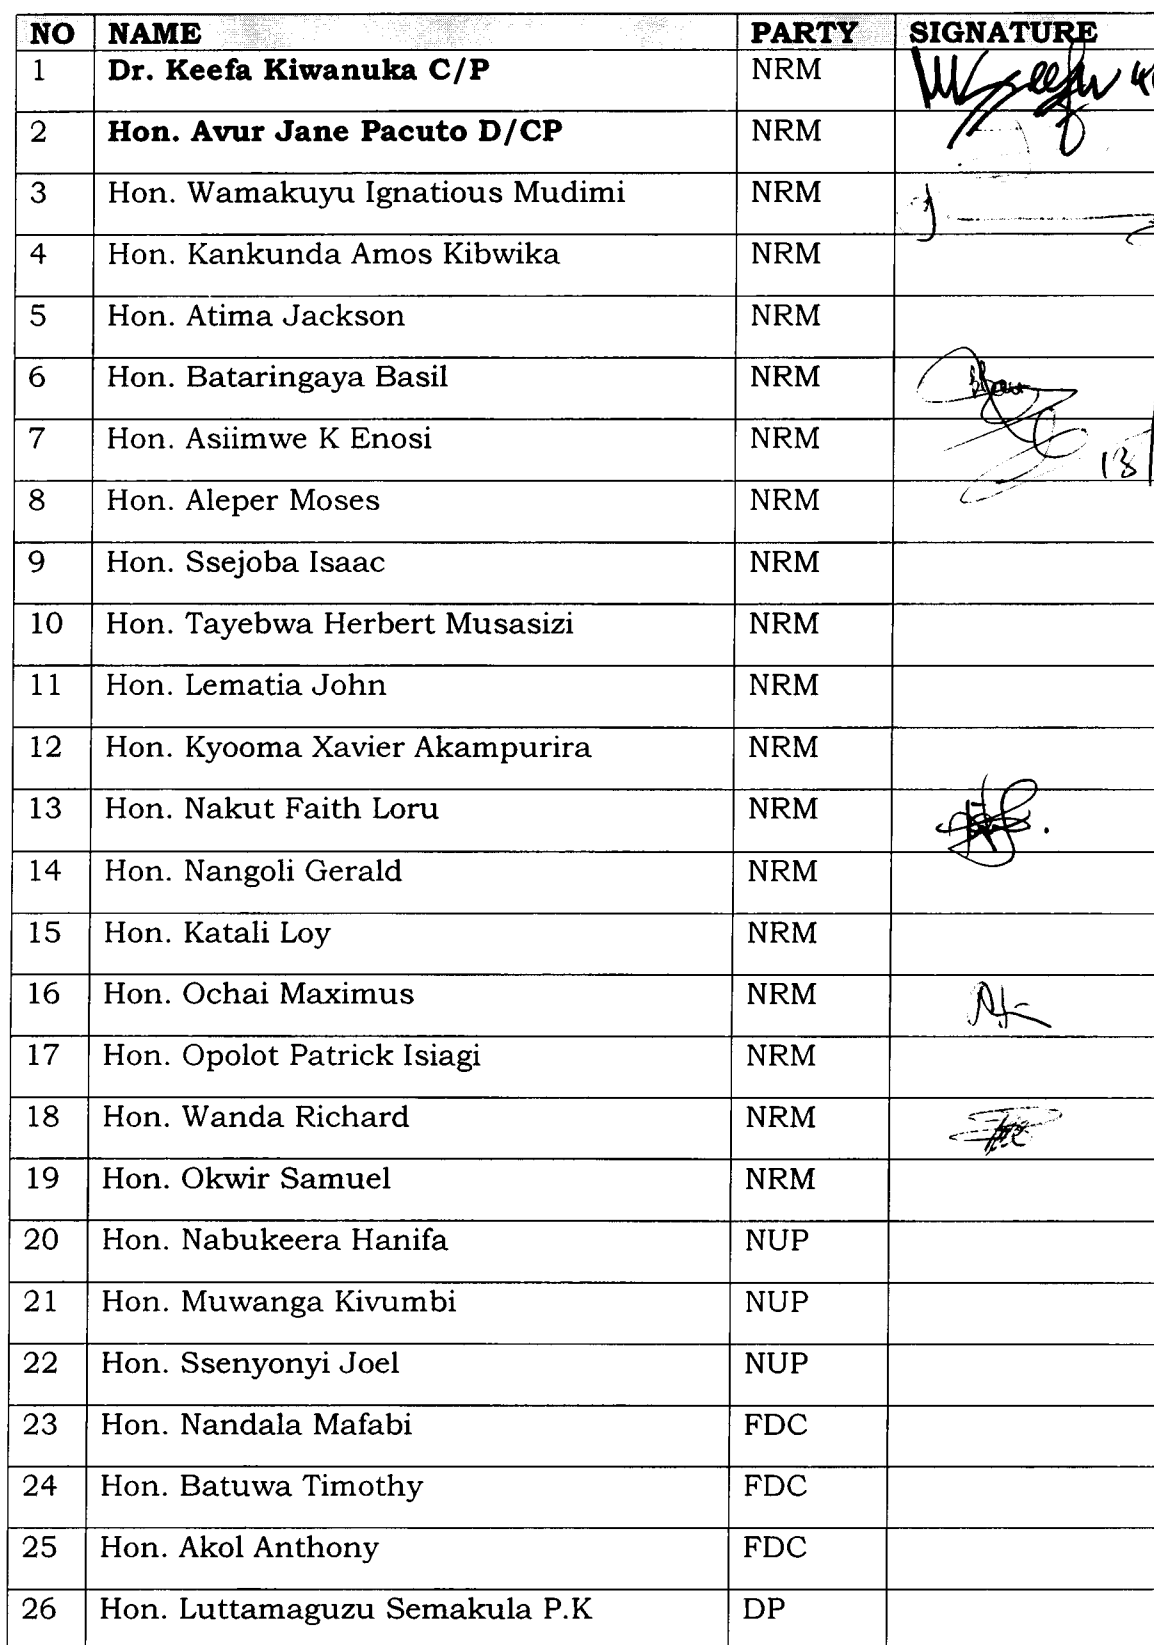 NO NAME PARTY SIGNATURE
1 Dr. Keefa Kiwanuka C/P NRM
2 Hon. Avur Jane Pacuto D/CP NRM
3 Hon. Wamakuyu Ignatious Mudimi NRM
4 Hon. Kankunda Amos Kibwika NRM
5 Hon. Atima Jackson NRM
6 Hon. Bataringaya Basil NRM
7 Hon. Asiimwe K Enosi NRM
8 Hon. Aleper Moses NRM
9 Hon. Ssejoba Isaac NRM
10 Hon. Tayebwa Herbert Musasizi NRM
11 Hon. Lematia John NRM
12 Hon. Kyooma Xavier Akampurira NRM
13 Hon. Nakut Faith Loru NRM
14 Hon. Nangoli Gerald NRM
15 Hon. Katali Loy NRM
16 Hon. Ochai Maximus NRM
17 Hon. Opolot Patrick Isiagi NRM
18 Hon. Wanda Richard NRM
19 Hon. Okwir Samuel NRM
20 Hon. Nabukeera Hanifa NUP
21 Hon. Muwanga Kivumbi NUP
22 Hon. Ssenyonyi Joel NUP
23 Hon. Nandala Mafabi FDC
24 Hon. Batuwa Timothy FDC
25 Hon. Akol Anthony FDC
26 Hon. Luttamaguzu Semakula P.K DP